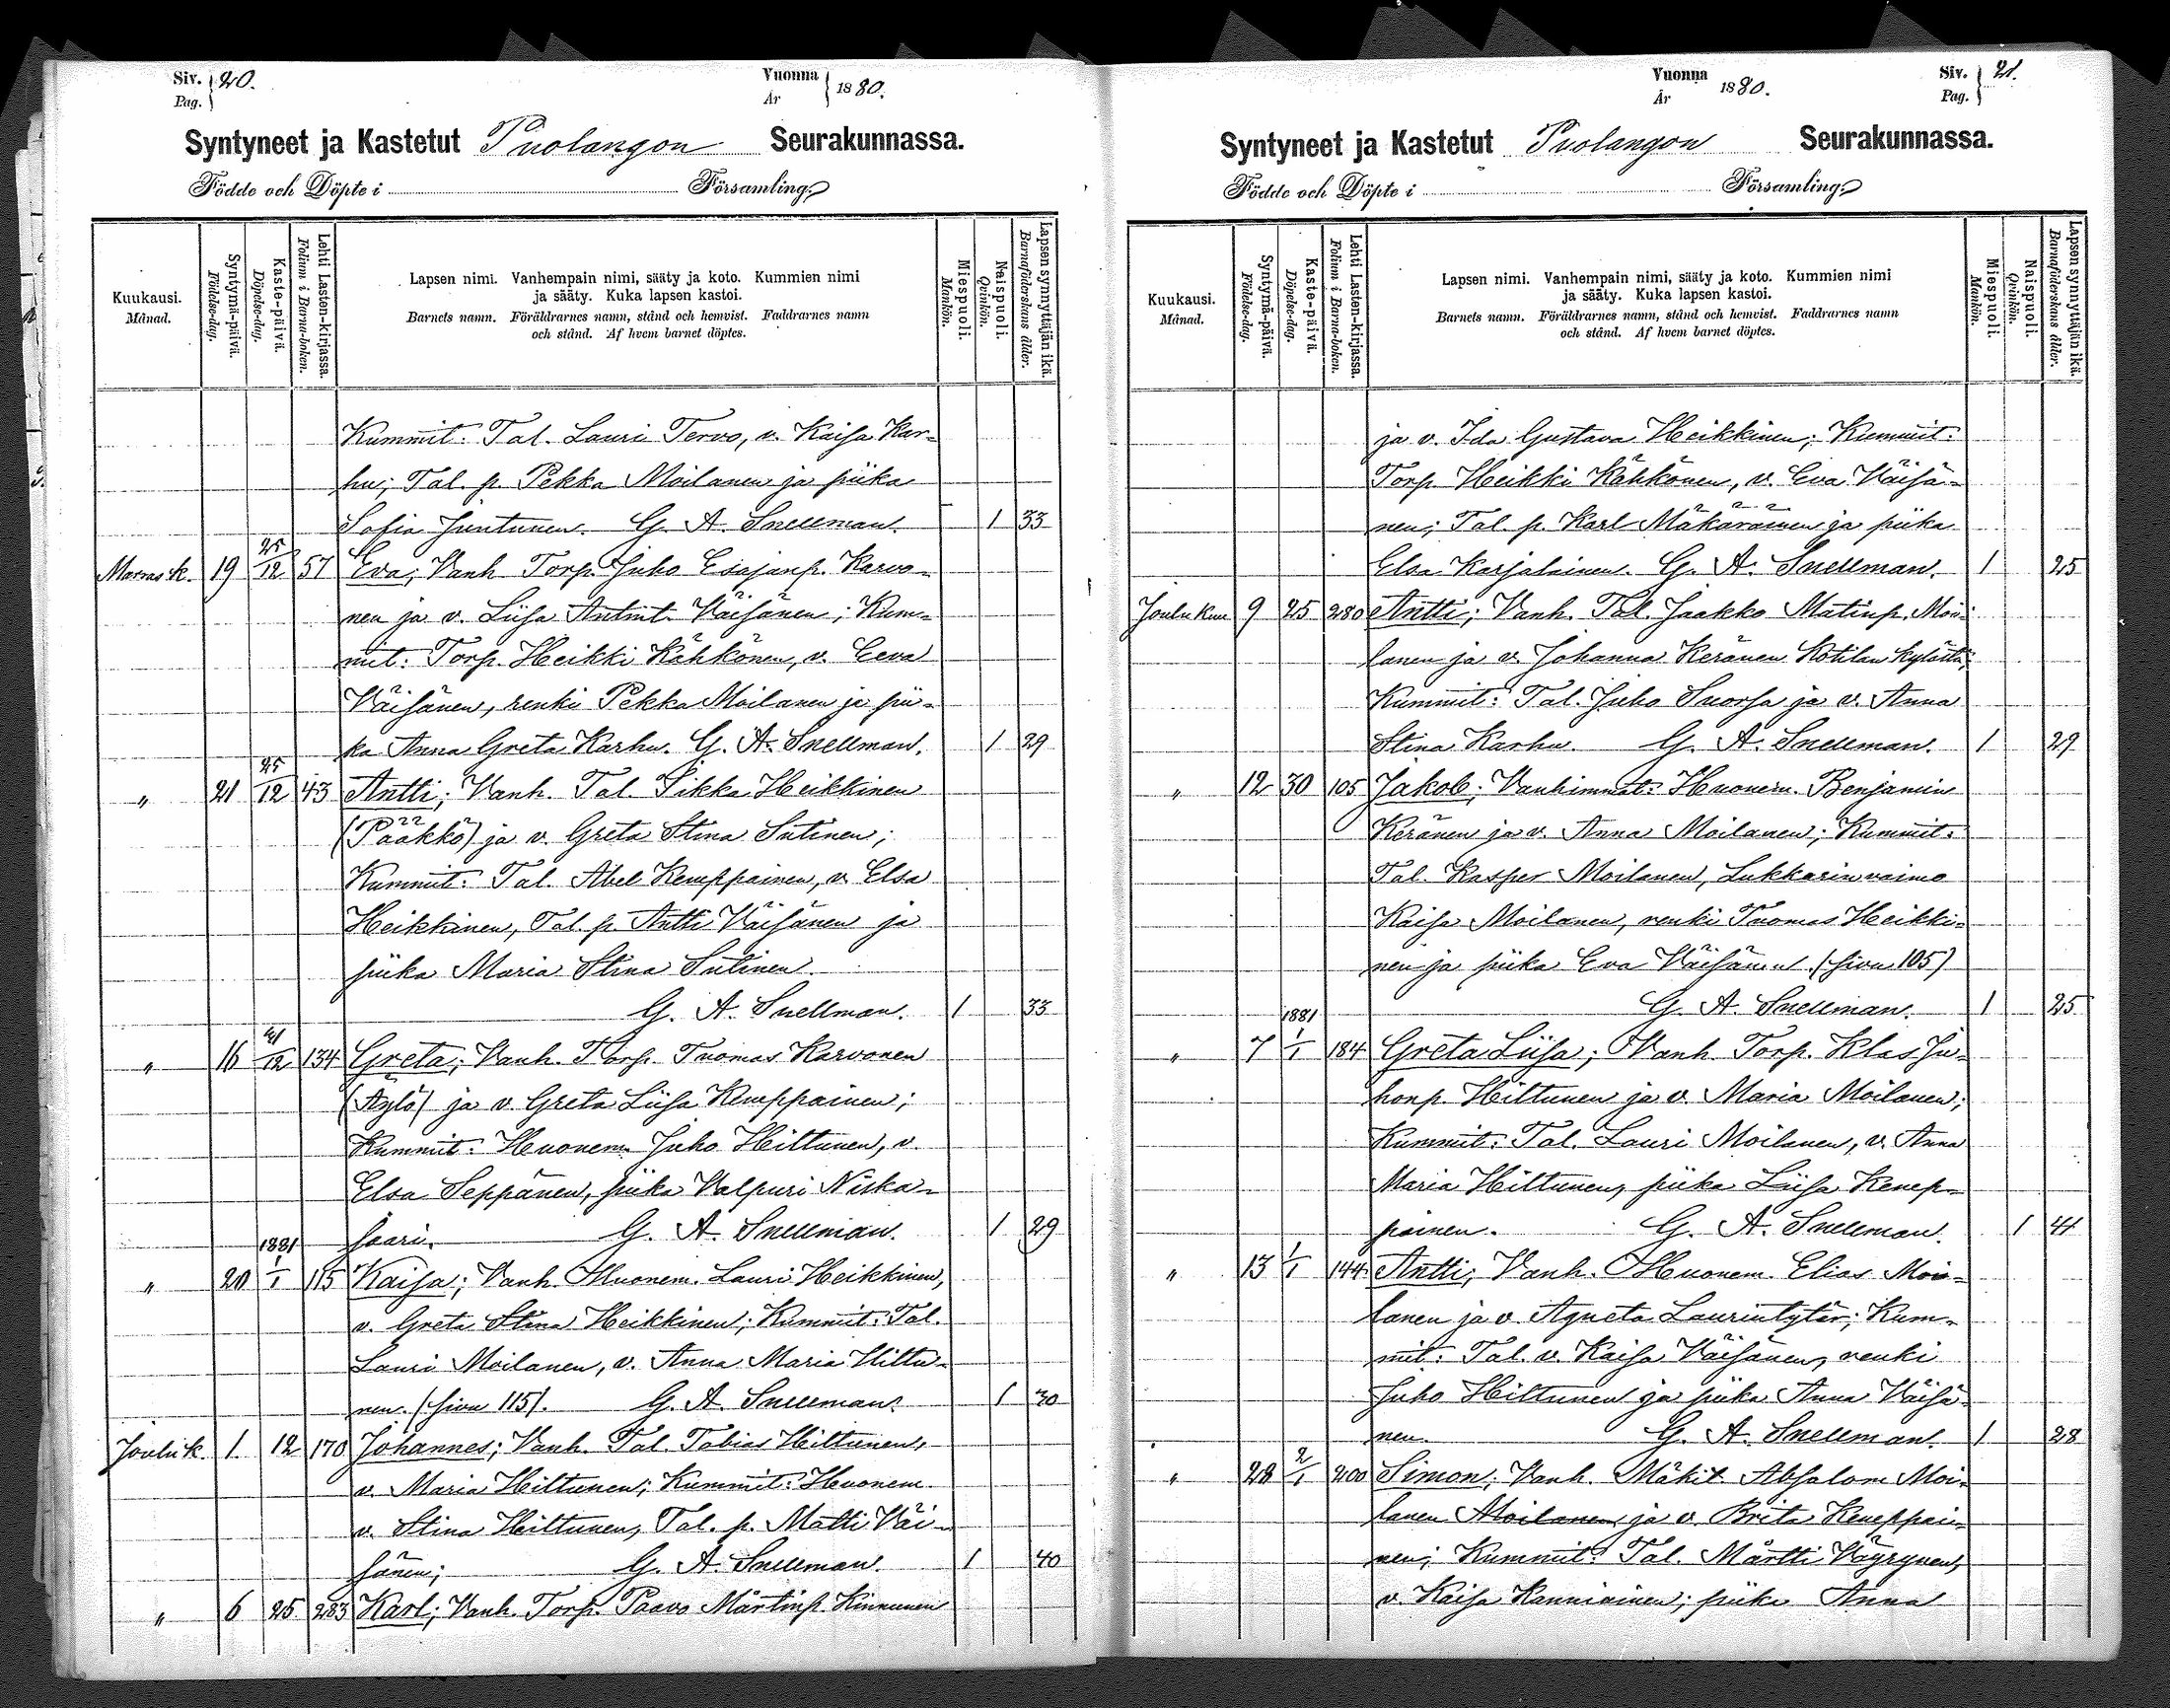 Siv. 20.
Pag.
Vuonna
År 1880.
Syntyneet ja Kastetut Puolangon Seurakunnassa.
Födde och Döpte i Församling.
Kuukausi.
Månad.
Syntymä-päivä.
Födelse-dag.
Kaste-päivä.
Döpelse-dag.
Lehti Lasten-kirjassa.
Folium i Barna-boken.
Lapsen nimi. Vanhempain nimi, sääty ja koto. Kummien nimi
ja sääty. Kuka lapsen kastoi.
Barnets namn. Föräldrarnes namn, stånd och hemvist. Faddrarnes namn
och stånd. Af hvem barnet döptes.
Miespuoli.
Mankön.
Naispuoli.
Qvinkön.
Lapsen synnyttäjän ikä.
Barnaföderskans ålder.
Kummit: Tal. Lauri Tervo, v. Kaisa Kar-
hu; Tal. p. Pekka Moilanen ja piika
Sofia Juntunen. G. A. Snellman. 1 33
Marras k. 19 25/12 57 Eva; Vanh. Torp. Juho Esajanp. Karvo-
nen ja v. Liisa Antint. Väisänen; Kum-
mit: Torp. Heikki Kähkönen, v. Eeva
Väisänen, renki Pekka Moilanen ja pii-
ka Anna Greta Karhu. G. A. Snellman. 1 29
" 21 25/12 43 Antti; Vanh. Tal. Sikka Heikkinen
(Pääkkö) ja v. Greta Stina Sutinen;
Kummit: Tal. Abel Kemppainen, v. Elsa
Heikkinen, Tal. p. Antti Väisänen ja
piika Maria Stina Sutinen.
G. A. Snellman. 1 33
" 16 21/12 134 Greta; Vanh. Torp. Tuomas Karvonen
(Äylö) ja v. Greta Liisa Kemppainen;
Kummit: Huonem. Juho Hiltunen, v.
Elsa Seppänen, piika Valpuri Niska-
saari. G. A. Snellman. 1 29
" 20 1881 1/1 115 Kaisa; Vanh. Huonem. Lauri Heikkinen,
v. Greta Stina Heikkinen; Kummit: Tal.
Lauri Moilanen, v. Anna Maria Hiltu-
nen. (sivu 115). G. A. Snellman. 1 30
Joulu k. 1 12 170 Johannes; Vanh. Tal. Tobias Hiltunen,
v. Maria Hiltunen; Kummit: Huonem.
v. Stina Hiltunen, Tal. p. Matti Väi-
sänen; G. A. Snellman. 1 40
" 6 25 283 Karl; Vanh. Torp. Paavo Märtinp. Kinnunen
Vuonna
År 1880.
Siv. 21.
Pag.
Syntyneet ja Kastetut Puolangon Seurakunnassa.
Födde och Döpte i Församling.
Kuukausi.
Månad.
Syntymä-päivä.
Födelse-dag.
Kaste-päivä.
Döpelse-dag.
Lehti Lasten-kirjassa.
Folium i Barna-boken.
Lapsen nimi. Vanhempain nimi, sääty ja koto. Kummien nimi
ja sääty. Kuka lapsen kastoi.
Barnets namn. Föräldrarnes namn, stånd och hemvist. Faddrarnes namn
och stånd. Af hvem barnet döptes.
Miespuoli.
Mankön.
Naispuoli.
Qvinkön.
Lapsen synnyttäjän ikä.
Barnaföderskans ålder.
ja v. Ida Gustava Heikkinen; Kummit:
Torp. Heikki Kähkönen, v. Eva Väisä-
nen; Tal. p. Karl Mäkäräinen ja piika
Elsa Karjalainen. G. A. Snellman. 1 25
Joulu kuu 9 25 280 Antti; Vanh. Tal. Jaakko Matinp. Moi-
lanen ja v. Johanna Keränen Kotilan kylästä;
Kummit: Tal. Juho Suorsa ja v. Anna
Stina Karhu. G. A. Snellman. 1 29
" 12 30 105 Jakob; Vanhimmat: Huonem. Benjamin
Keränen ja v. Anna Moilanen; Kummit:
Tal. Kasper Moilanen, Lukkarin vaimo
Kaisa Moilanen, renki Tuomas Heikki-
nen ja piika Eva Väisänen. (sivu 105)
G. A. Snellman. 1 25
" 7 1881 1/1 184 Greta Liisa; Vanh. Torp. Klas Ju-
honp. Hiltunen ja v. Maria Moilanen;
Kummit: Tal. Lauri Moilanen, v. Anna
Maria Hiltunen, piika Liisa Kemp-
painen. G. A. Snellman. 1 41
" 13 1/1 144 Antti; Vanh. Huonem. Elias Moi-
lanen ja v. Agneta Laurintytär; Kum-
mit: Tal. v. Kaisa Väisänen, renki
Juho Hiltunen ja piika Anna Väisä-
nen. G. A. Snellman. 1 28
" 28 2/1 200 Simon; Vanh. Mäkit. Absalom Moi-
lanen Moilanen ja v. Brita Kemppai-
nen; Kummit: Tal. Märtti Väyrynen,
v. Kaisa Kanniainen; piika Anna